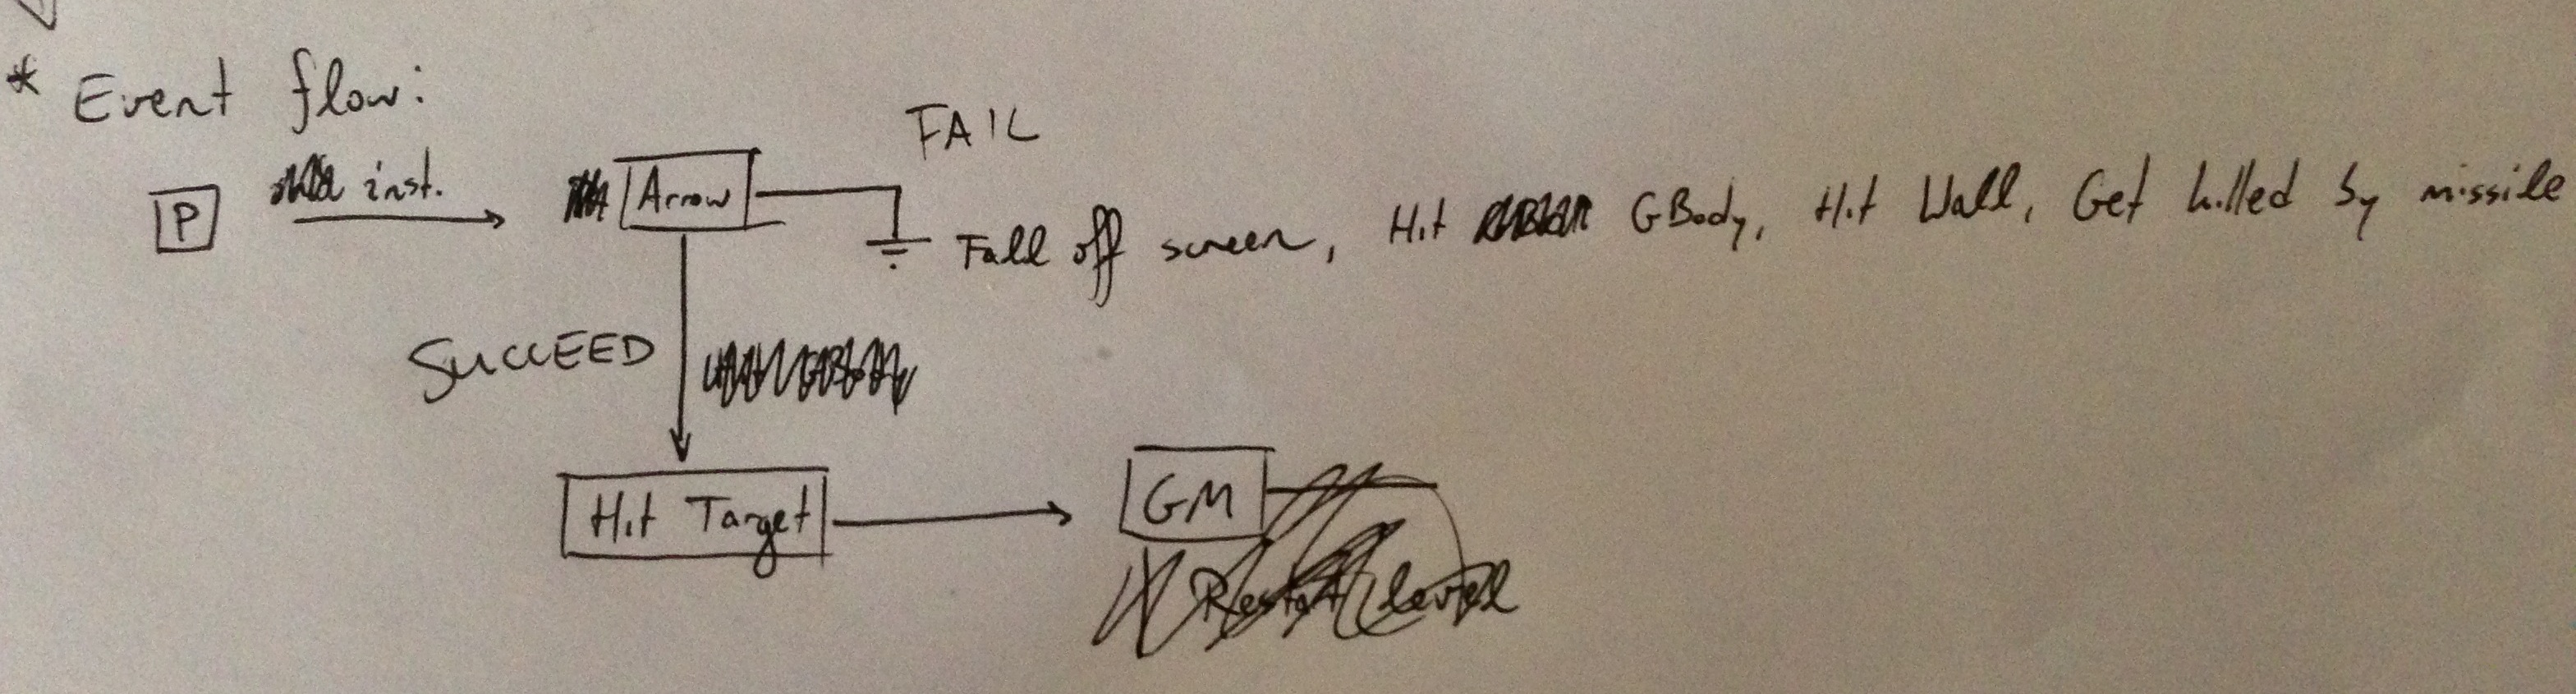 * Event flow:
FAIL
P inst. Arrow
Fall off screen, Hit GBody, Hit Wall, Get killed by missile
SUCCEED
Hit Target GM
Restart level